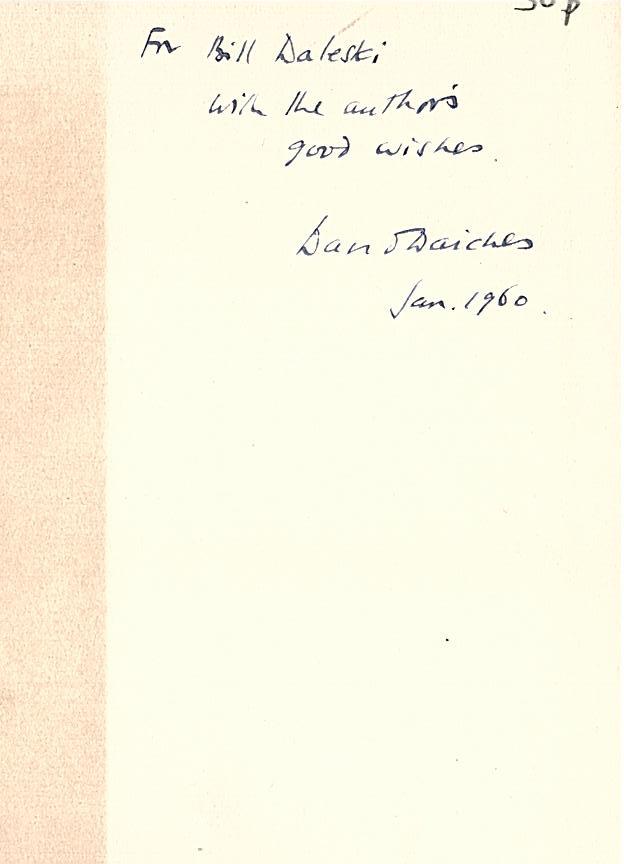 For Bill Daleski
with the author's
good wishes.
David Daiches
Jan. 1960.